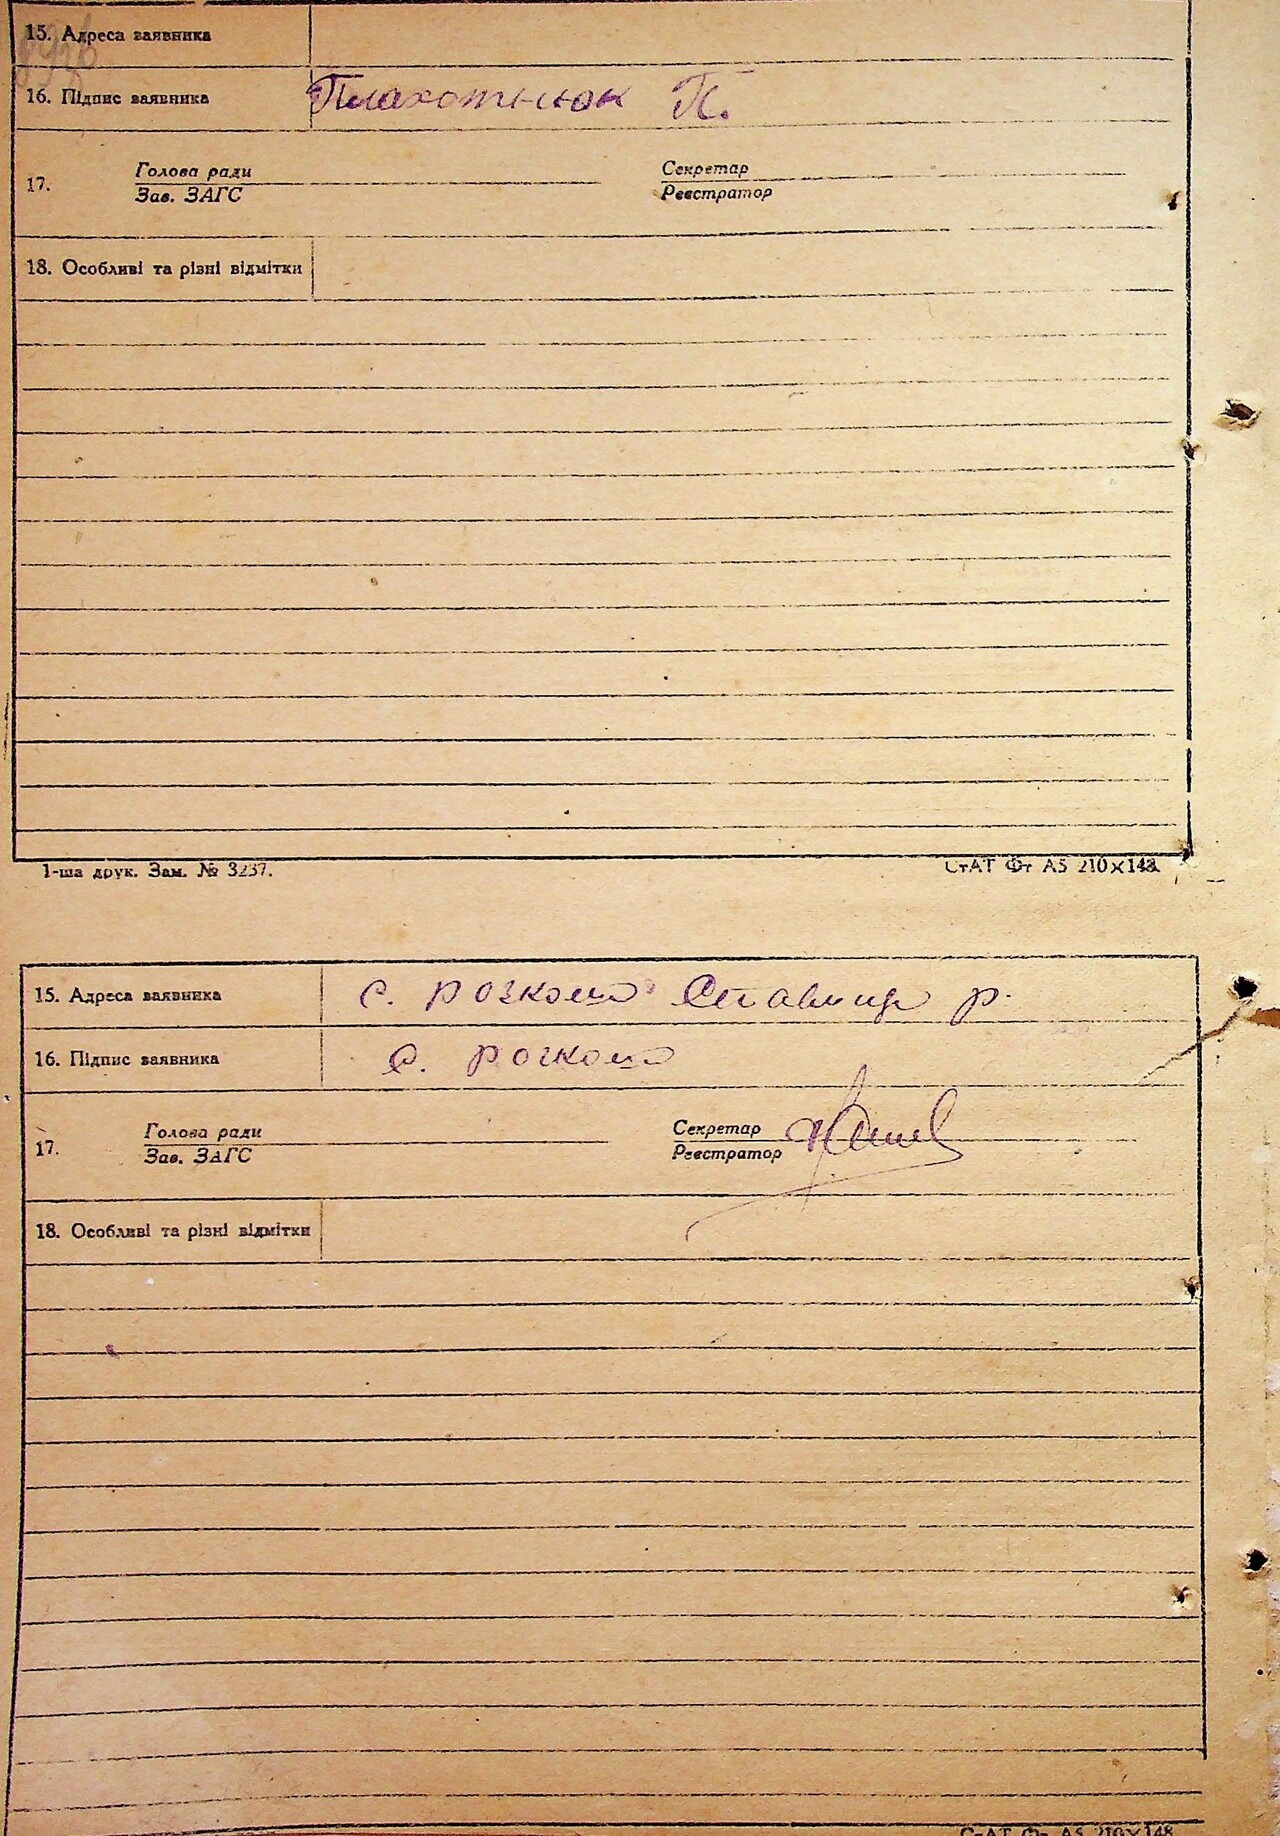 15. Адреса заявника
16. Підпис заявника Плахотнюк П.
17. Голова ради Секретар
Зав. ЗАГС Реєстратор
18. Особливі та різні відмітки
1-ша друк. Зам. № 3237. СтАТ Фт А5 210×148
15. Адреса заявника с. розкоша Ставищ р.
16. Підпис заявника с.
17. Голова ради Секретар
Зав. ЗАГС Реєстратор
18. Особливі та різні відмітки
СтАТ Фт А5 210×148